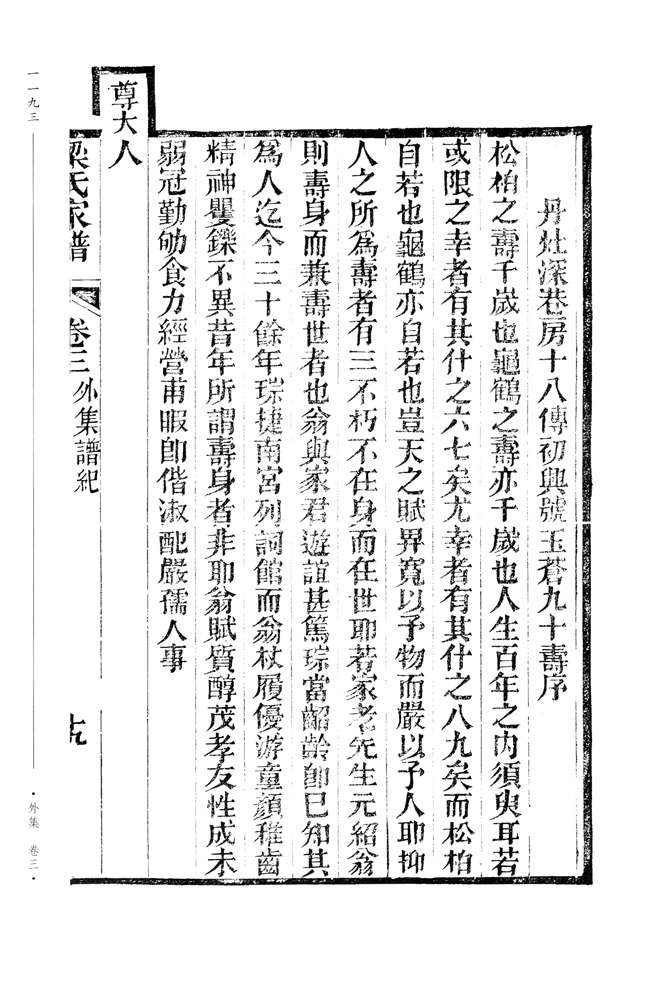 丹灶深巷房十八傳初興號玉蒼九十壽序
松柏之壽千歲也龜鶴之壽亦千歲也人生百年之內須臾耳若
或限之幸者有其什之六七矣尤幸者有其什之八九矣而松柏
自若也龜鶴亦自若也豈天之賦畀寬以予物而嚴以予人耶抑
人之所爲壽者有三不朽不在身而在世耶若家老先生元紹翁
則壽身而兼壽世者也翁與家君遊誼甚篤琮當齠齡卽已知其
爲人迄今三十餘年琮捷南宮列詞館而翁杖履優游童顏稚齒
精神矍鑠不異昔年所謂壽身者非耶翁賦質醇茂孝友性成未
弱冠勤劬食力經營甫暇卽偕淑配嚴孺人事
尊大人
梁氏家譜 卷三 外集譜紀 十九
一一九三
·外集 卷三·